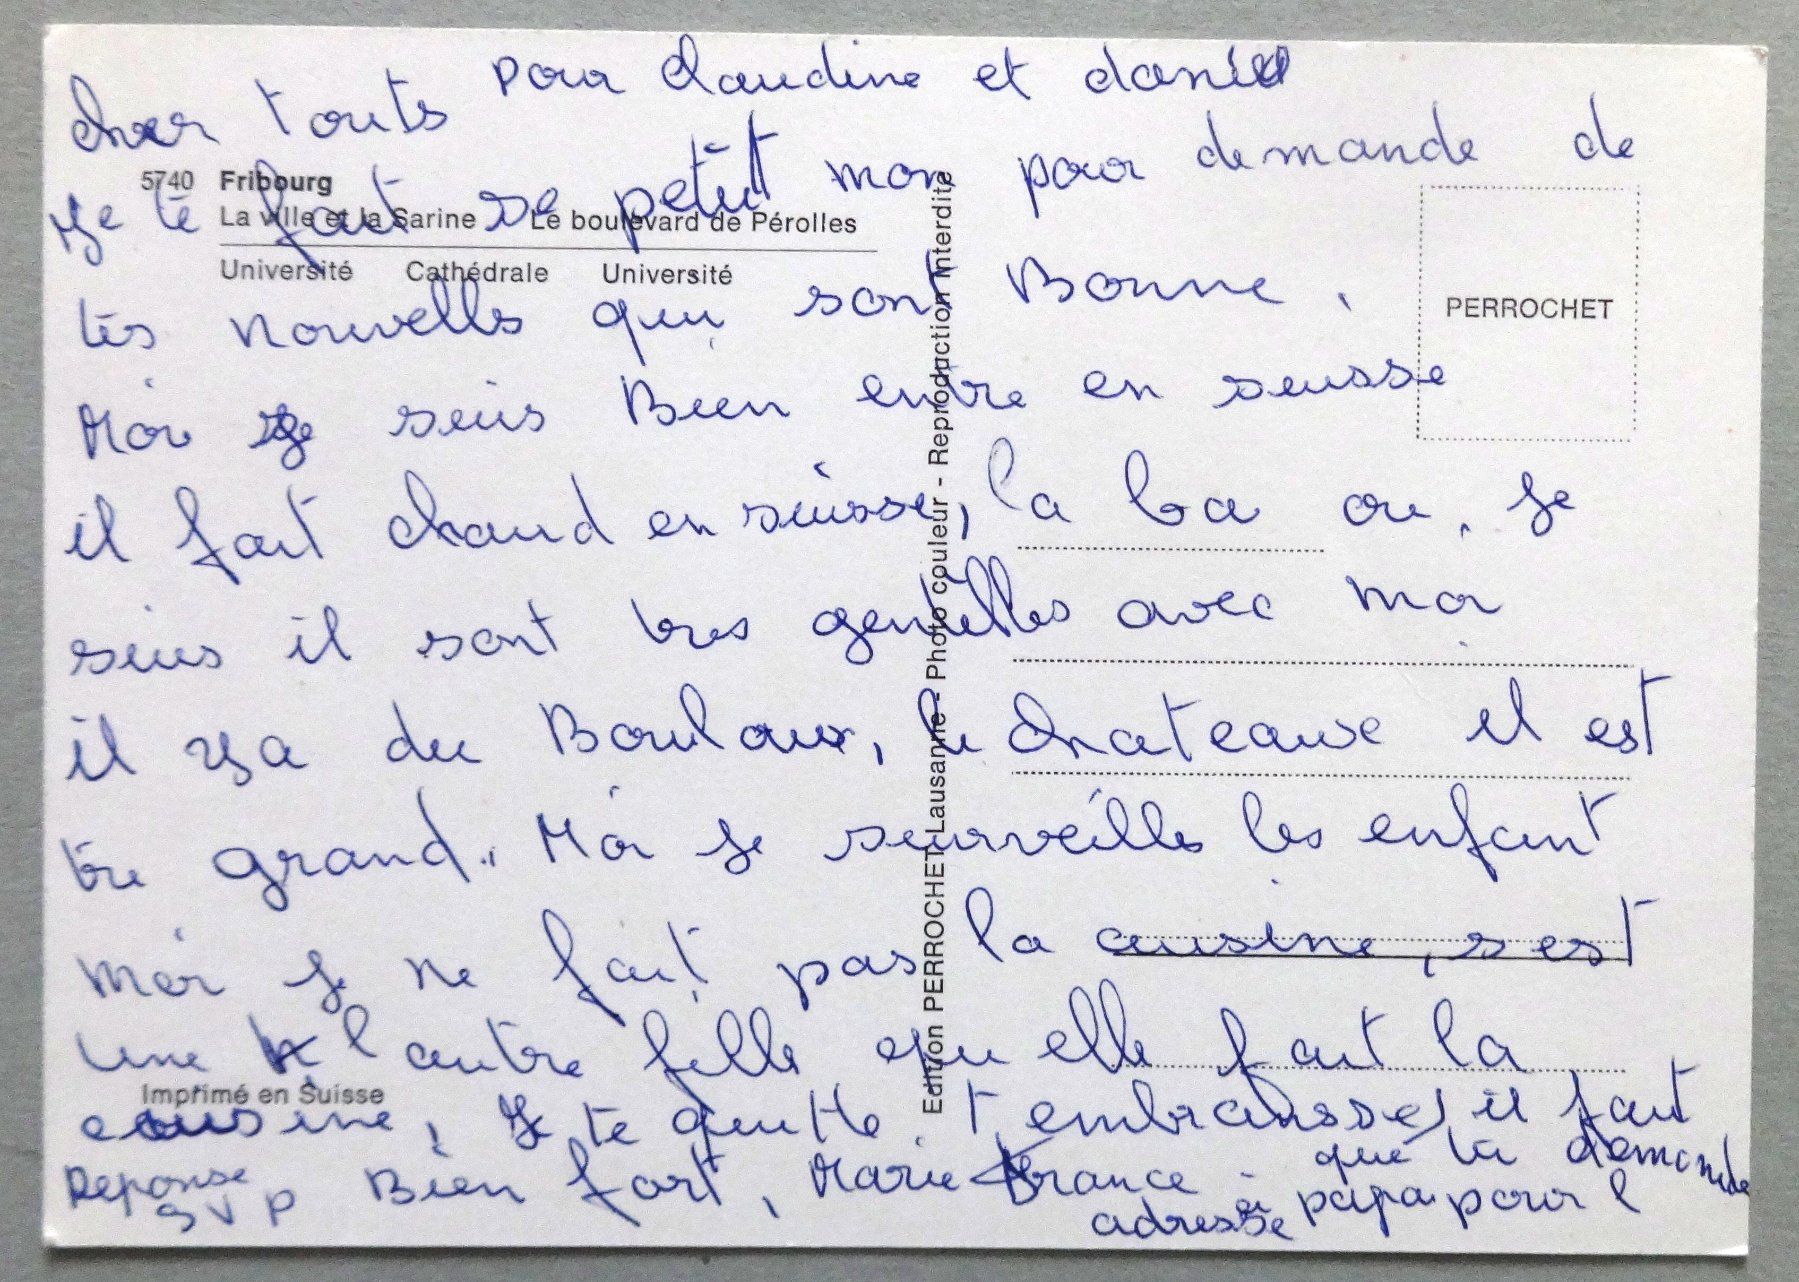 pour Claudine et daniel
cher touts
5740 Fribourg
La ville et la Sarine Le boulevard de Pérolles
Université Cathédrale Université
Je te fait se petit mon pour demande de
tes nouvelles qui sont Bonne,
Moi je suis Bien entre en suisse
il fait chaud en suisse, la ba ou, je
suis il sont tres gentilles avec moi
il ya du Boulaux, le chateaux il est
tre grand. Moi je surveille les enfant
moi je ne fait pas la cuisine, s est
une l autre fille qu elle fait la
cousine, Je te quitte, t embrausse, il faut
que tu demande
Reponse Bien fort, Marie France
SVP adresse à papa pour l
PERROCHET
Edition PERROCHET Lausanne - Photo couleur - Reproduction interdite
Imprimé en Suisse